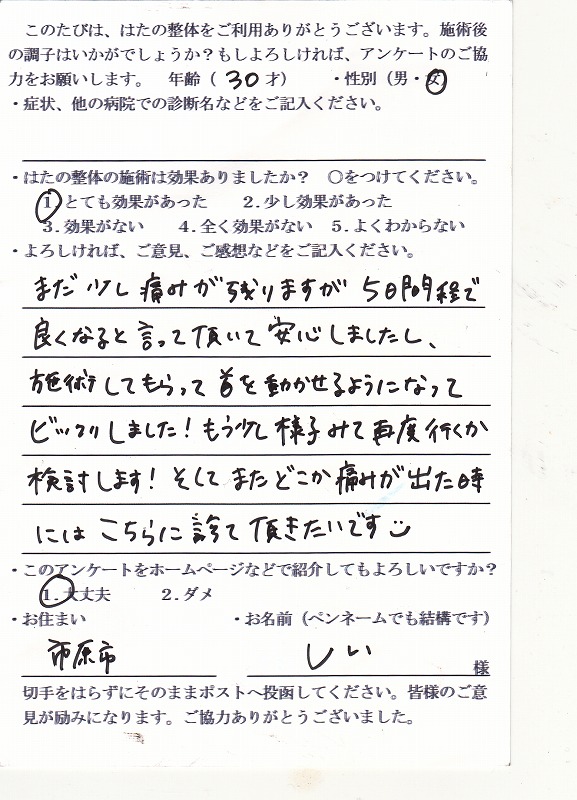 このたびは、はたの整体をご利用ありがとうございます。施術後
の調子はいかがでしょうか？もしよろしければ、アンケートのご協
力をお願いします。 年齢（ 30 才） ・性別（男・女）
・症状、他の病院での診断名などをご記入ください。
・はたの整体の施術は効果ありましたか？ 〇をつけてください。
1 とても効果があった 2.少し効果があった
3.効果がない 4.全く効果がない 5.よくわからない
・よろしければ、ご意見、ご感想などをご記入ください。
まだ少し痛みが残りますが 5日間程で
良くなると言って頂いて安心しましたし、
施術してもらって首を動かせるようになって
ビックリしました！もう少し様子みて再度行くか
検討します！そしてまたどこか痛みが出た時
にはこちらに診て頂きたいです
・このアンケートをホームページなどで紹介してもよろしいですか？
1.大丈夫 2.ダメ
・お住まい ・お名前（ペンネームでも結構です）
市原市 しい 様
切手をはらずにそのままポストへ投函してください。皆様のご意
見が励みになります。ご協力ありがとうございました。